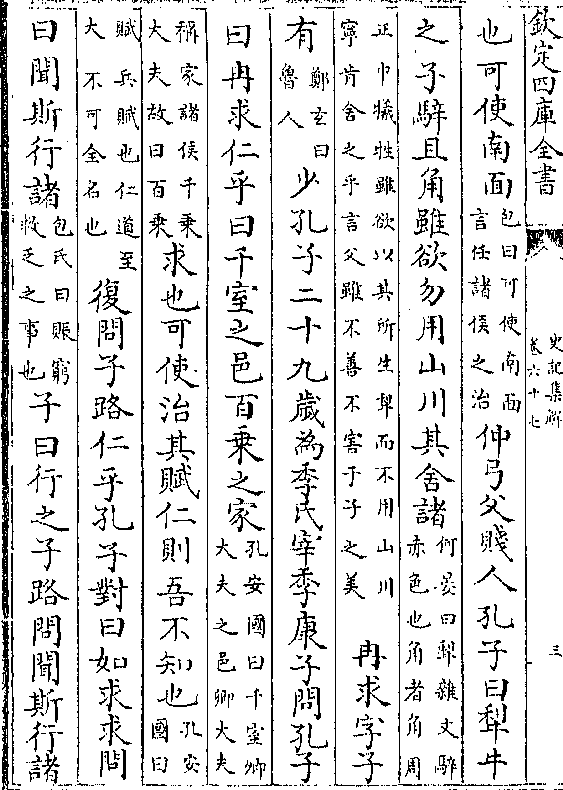 欽定四庫全書
史記集解
卷六十七
三
也可使南面包曰可使南面言任諸侯之治仲弓父賤人孔子曰犁牛
之子騂且角雖欲勿用山川其舍諸何晏曰犁雜文騂赤色也角者角周
正巾犧牲雖欲以其所生犁而不用山川寧肯舍之乎言父雖不善不害于子之美冉求字子
有鄭玄曰魯人少孔子二十九歲為季氏宰季康子問孔子
曰冉求仁乎曰千室之邑百乗之家孔安國曰千室卿大夫之邑卿大夫
稱家諸侯千乗大夫故曰百乗求也可使治其賦仁則吾不知也孔安國曰
賦兵賦也仁道至大不可全名也復問子路仁乎孔子對曰如求求問
曰聞斯行諸包氏曰賑窮救乏之事也子曰行之子路問聞斯行諸